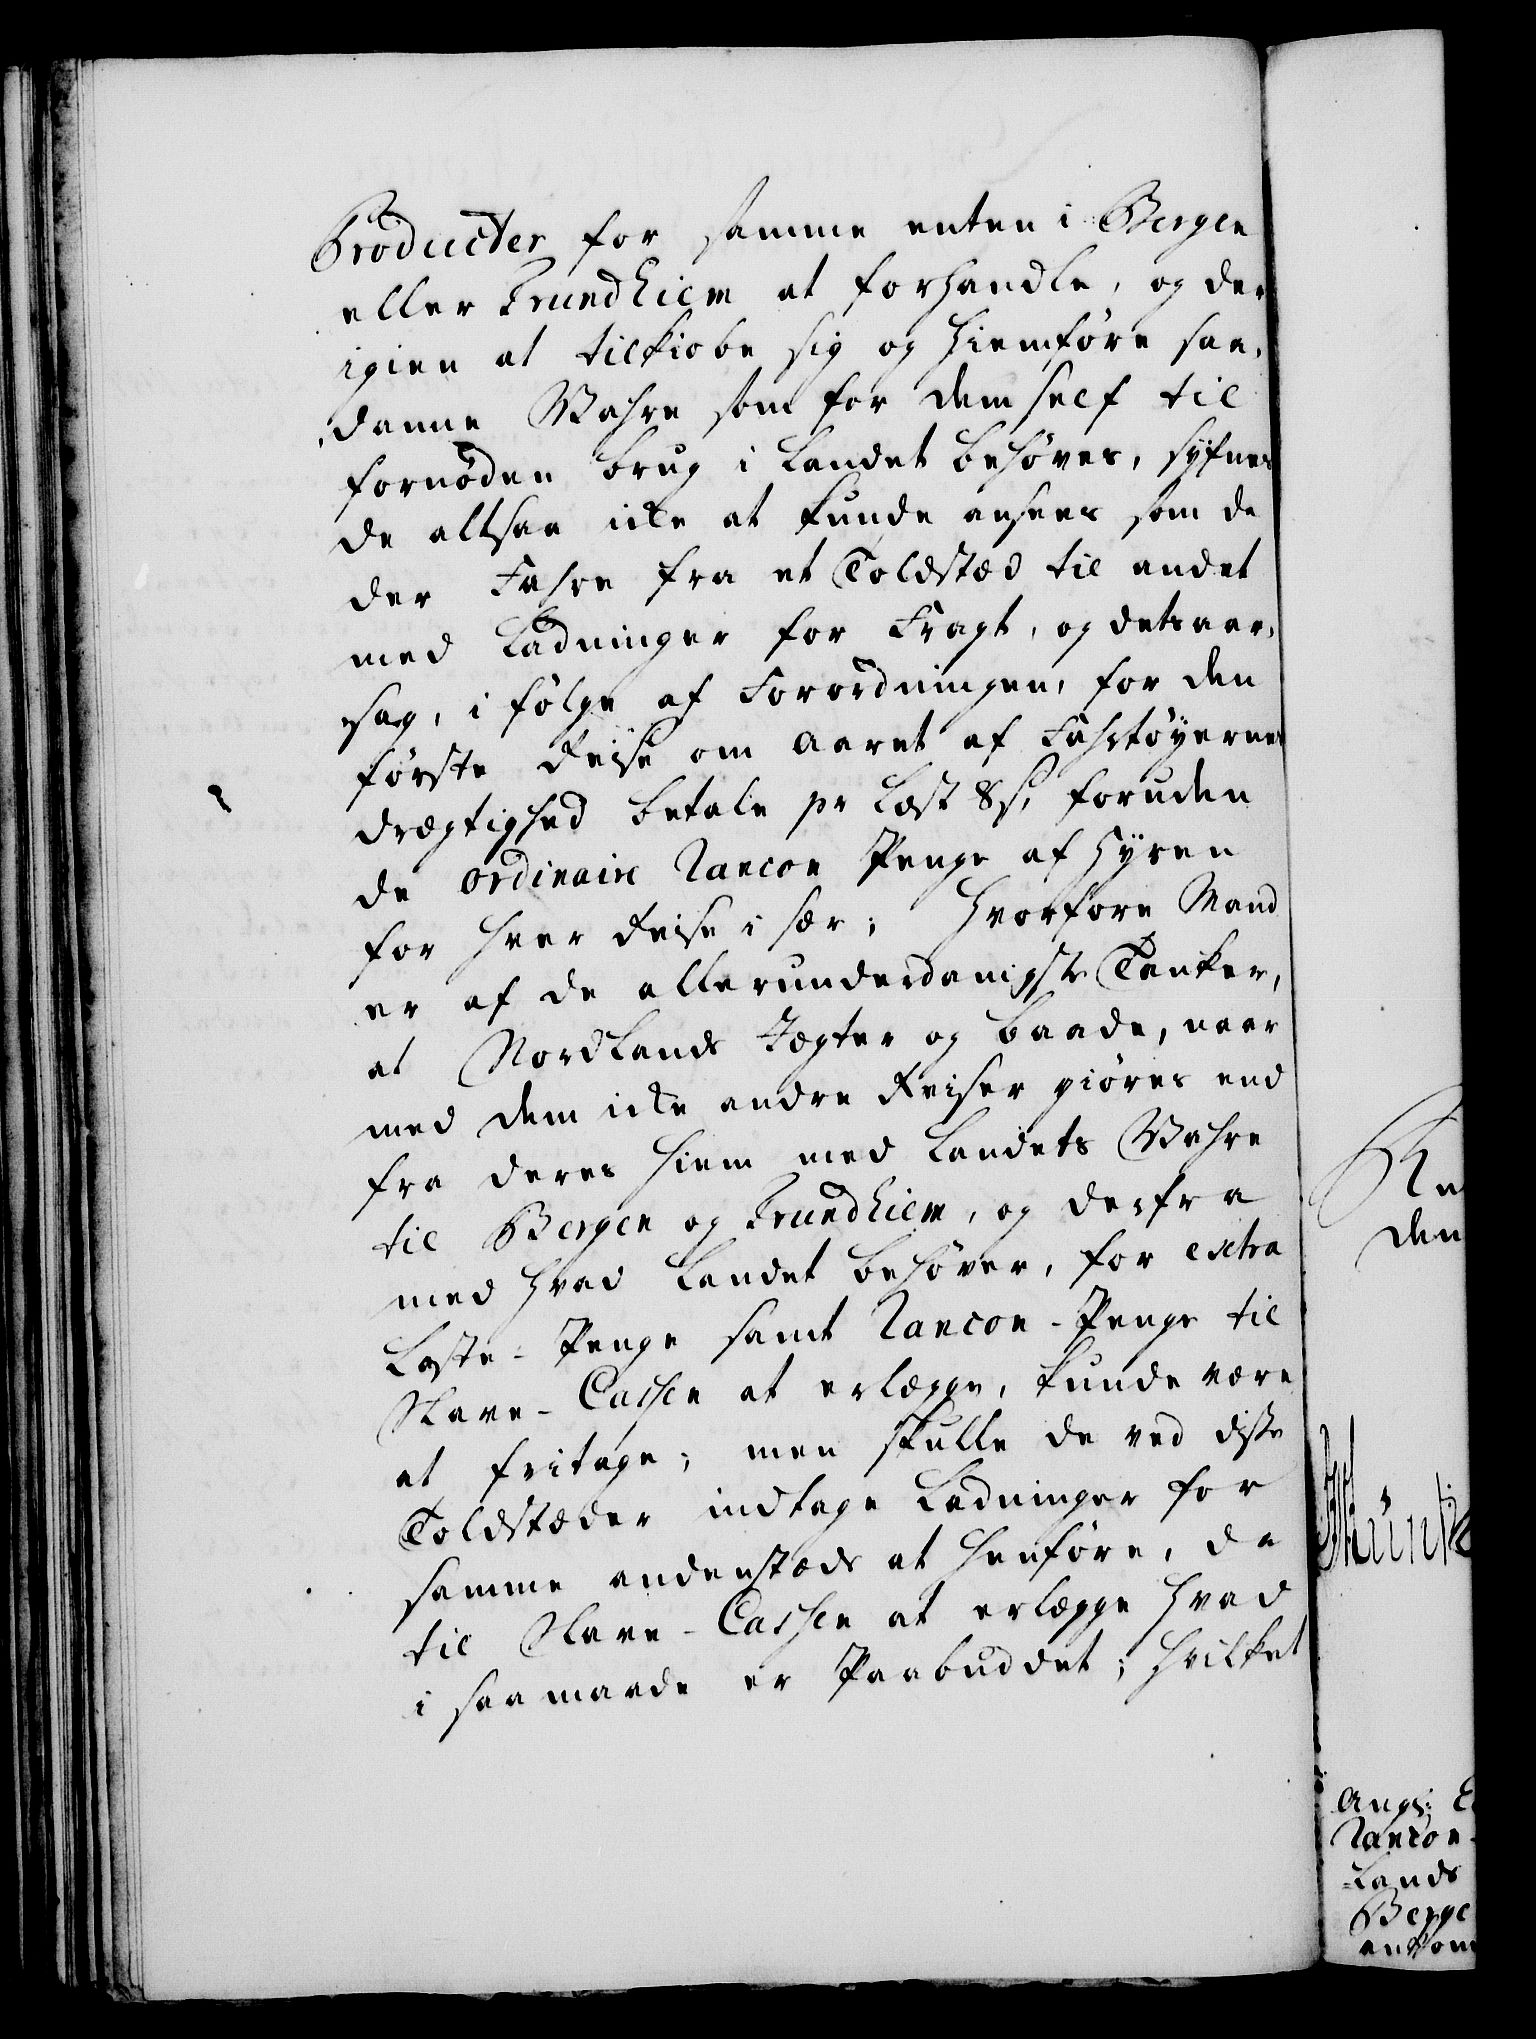 Producter for samme enten i Bergen
eller Trundhiem at forhandle, og der
igien at tilkiøbe sig og hiemføre saa,
danne Wahre som for dem self til
fornøden brug i Landet behøves, synes
de altsaa icke at kunde ansees som de
der Fahre fra et Toldsted til andet
med Ladninger for Fragt, og detsaar,
sag, i følge af Forordningen, for den
første Reise om Aaret af Fahrtøyernes
drægtighed betale pr Læst 8 s, foruden
de ordinaire Rancon Penge af Hyren
for hver Reise i sær; Hvorfore Mand
er af de allerunderdanigste Tanker,
at Nordlands Jægter og baade, naar
med dem icke andre Reiser giøres end
fra deres Hiem med Landets Wahre
til Bergen og Trundhiem, og derfra
med hvad Landet behøver, for extra
Læste-Penge samt Rancon-Penge til
Slave-Cassen at erlægge, kunde være
at fritage; men skulle de ved disse
Toldstæder indtage Ladninger for
samme andenstæds at henføre, da
til Slave-Cassen at erlægge hvad
i saa maade er Paabuddet; hvilket
den
Rancon-
Lands
Berge
ankom